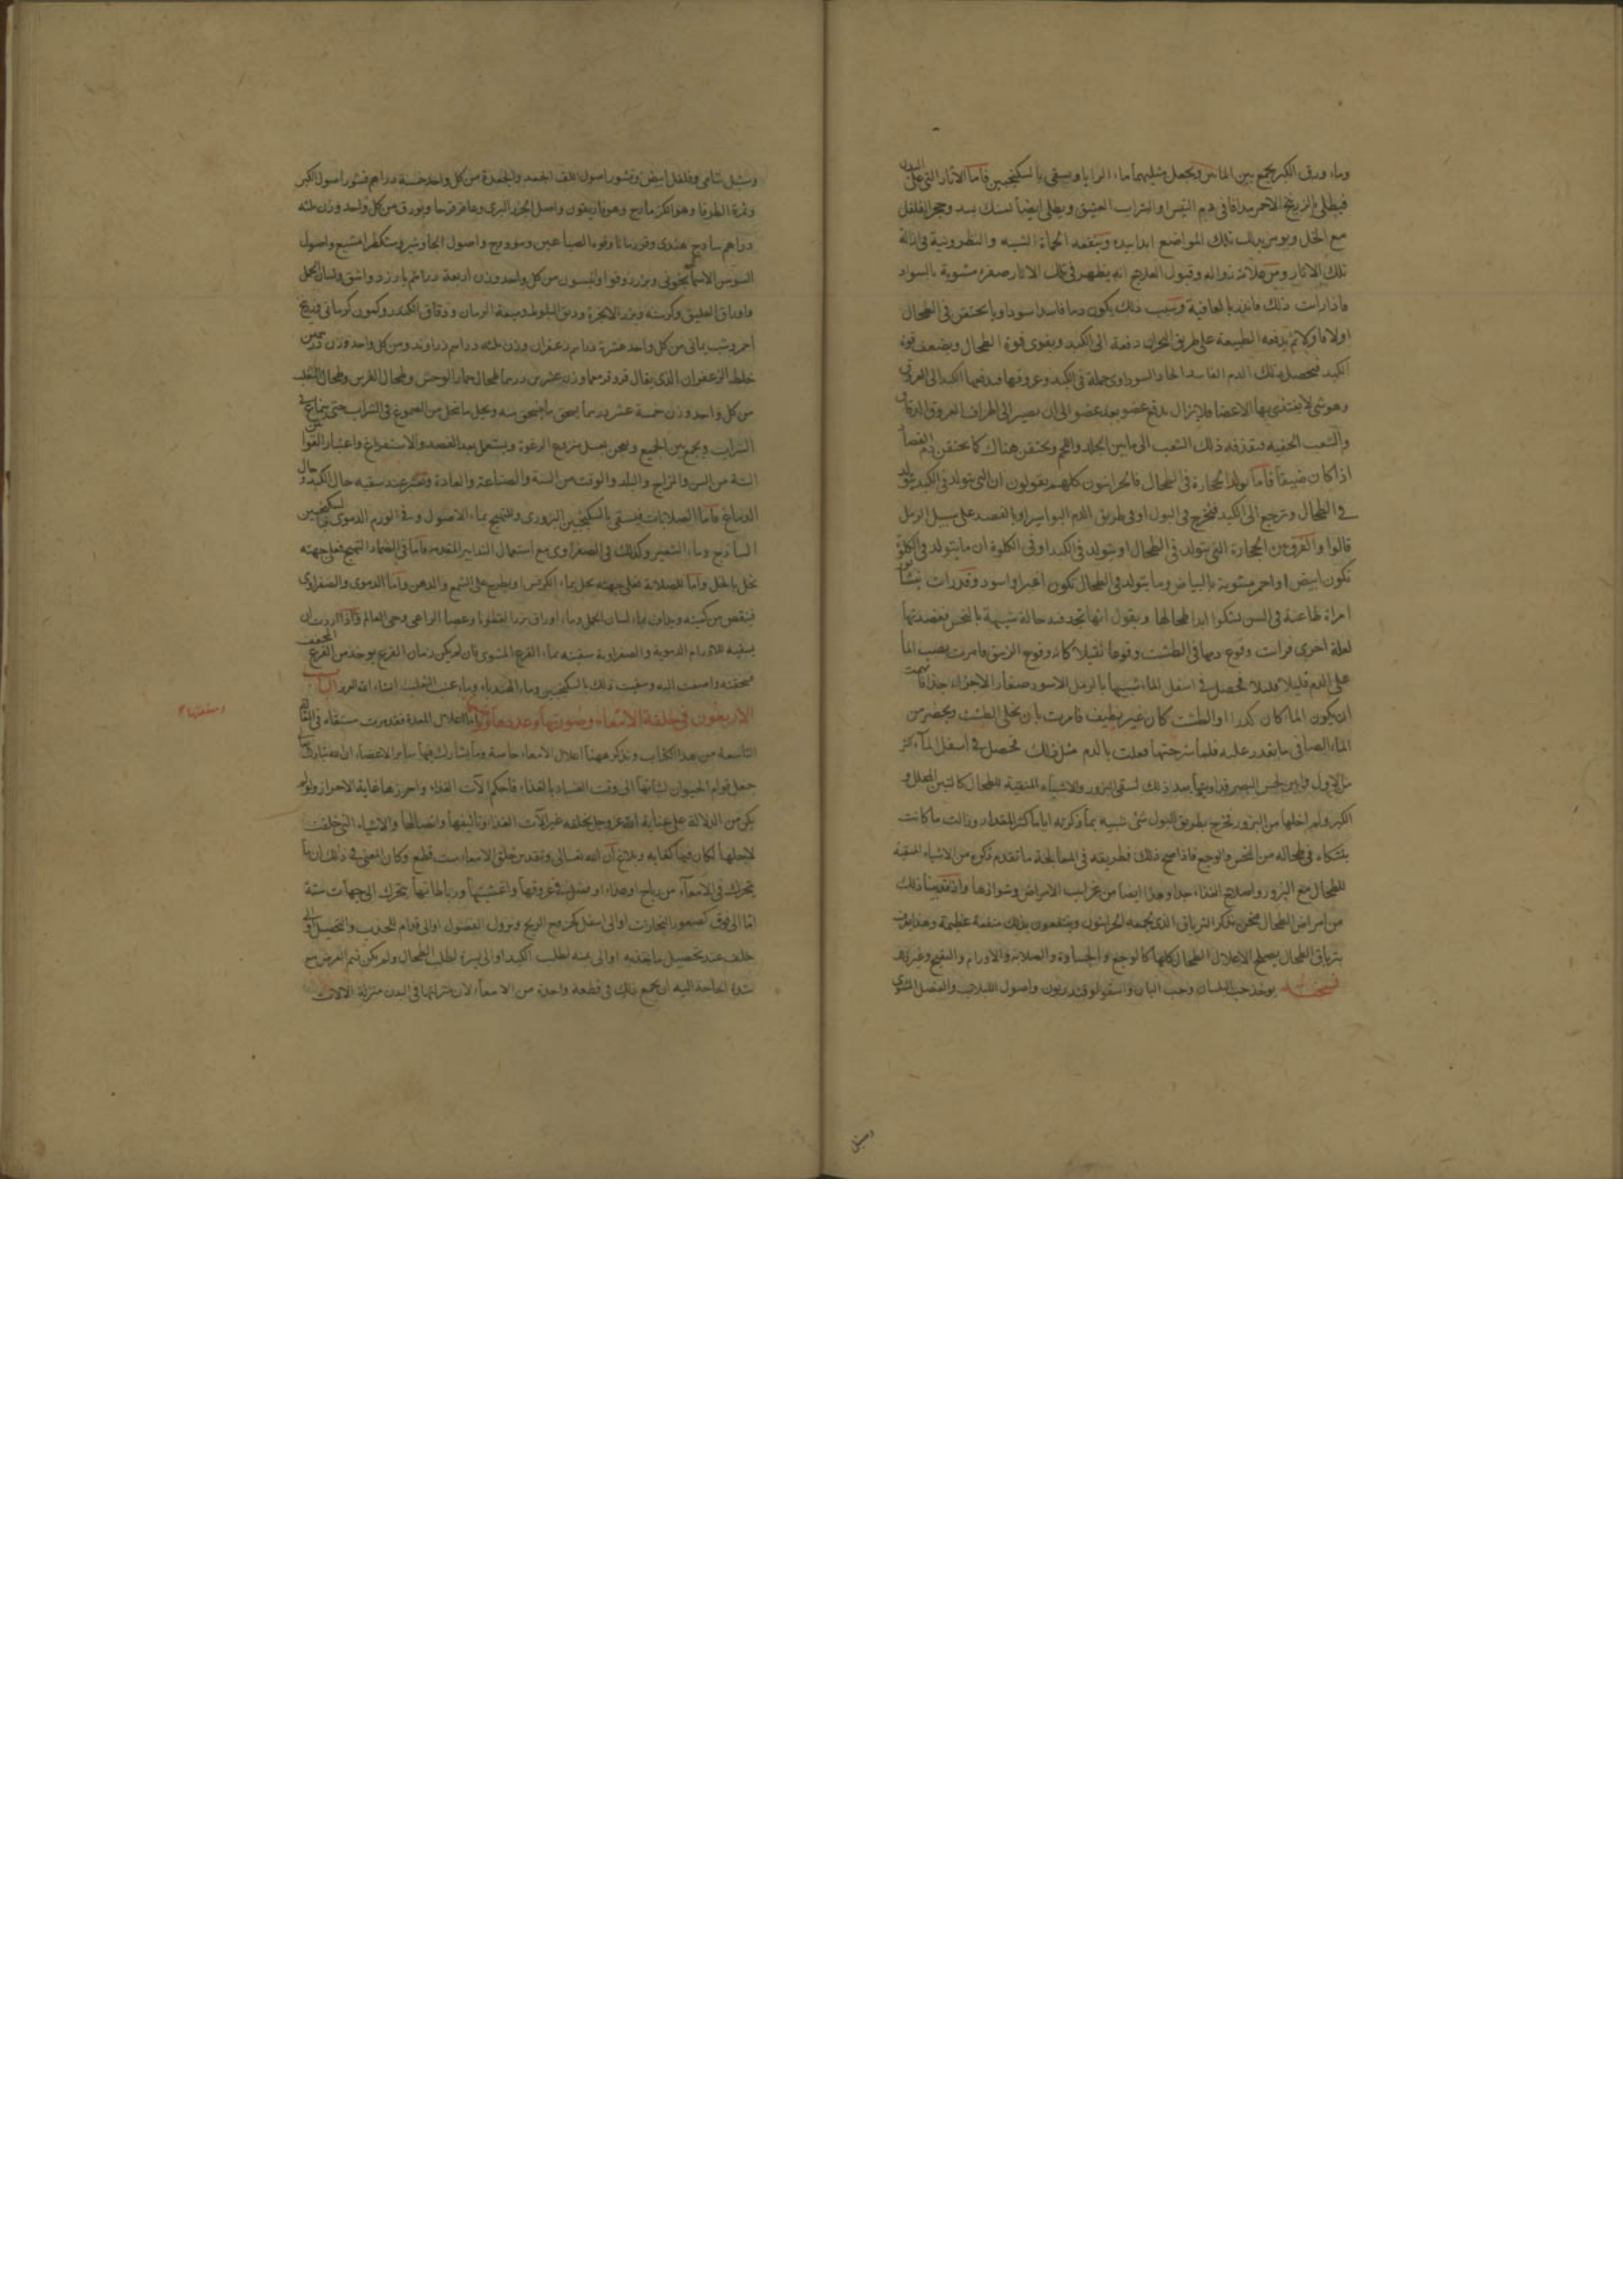 وماء ورق الكبر يجمع بين المائين ويجعل مثليهما ماء الرايا ويسقى بالسكنجبين فاما الآثار التى على البدن
فيطلى بالزرنيخ الاحمر مدافا فى دم التيس او الشراب العتيق ويطلى ايضا وحجر الفلفل
مع الخل ويومر بدلك تلك المواضع ابدا بيده وينفعه الحمأة الشبيه والنطرونية فى ازالة
تلك الاثار ومن علامة زواله وقبول العلاج انه يظهر فى تلك الاثار صفرة مشوبة بالسواد
فاذا رأيت ذلك فأنذر بالعافية وسبب ذلك يكون دما فاسدا سوداويا يحتقن فى الطحال
اولا فاولا ثم يدفعه الطبيعة على طريق البحران دفعة الى الكبد ويقوى قوة الطحال ويضعف قوة
الكبد فيحصل ذلك الدم الفاسد الحاد السوداوى جملة فى الكبد وعروقها فيدفعها الكبد الى العروق
وهو شئ لا يغتذى بها الاعضا فلا يزال يدفع عضو بعد عضو الى ان يصير الى اطراف العروق الدقاق
والشعب الخفيه فيقذفه ذلك الشعب الى ما بين الجلد واللحم ويحتقن هناك كما يحتقن دم الفصد
اذا كان ضيقا فاما تولد الحجارة فى الطحال فالحرانيون كلهم يقولون ان التى يتولد فى الكبد يتولد
فى الطحال وترجع الى الكبد فيخرج فى البول او فى طريق الدم البواسير او بالفصد على سبيل الرمل
قالوا والفرق بين الحجارة التى يتولد فى الطحال او يتولد فى الكبد او فى الكلوة ان ما يتولد فى الكلوة
تكون ابيض او احمر مشوبة بالبياض وما يتولد فى الطحال تكون اغبر او اسود وقد رأيت
امراة طاعنة فى السن تشكوا ابدا طحالها ويقول انها تجد فيه حالة شبيهة بالنخس ففصدتها
لعلة اخرى فرأيت وقوع دمها فى الطشت وقوعا ثقيلا كانه وقوع الزيبق فامرت بصب الماء
على الدم قليلا قليلا فحصل فى اسفل الماء شبيها بالرمل الاسود صغار الاجزاء جدا
ان يكون الما كان كدرا او الطشت كان غير نظيف فامرت بان يجلى الطشت ويحضر من
الماء الصافى ما يقدر عليه فلما سرحتها فعلت بالدم مثل ذلك فحصل فى اسفل الماء اكثر
من الاول وابين لحس البصر فداويتها بعد ذلك بسقى البزور والاشياء المنقية للطحال كالتين المخلل و
الكبر ولم اخلها من البزور فخرج بطريق البول شئ شبيه بما ذكرته اياما كثير المقدار وزالت ما كانت
يتشكاه فى طحاله من النخس والوجع فاذا صح ذلك فطريقه فى المعالجة ما تقدم ذكره من الاشياء المنقية
للطحال مع البزور واصلاح الغذاء جدا وهذا ايضا من غرايب الامراض وشواذها واذ تقدمنا ذلك
من امراض الطحال فنحن نذكر الترياق الذى يجمعه الحرانيون وينتفعون بذلك منفعة عظيمة وهذا يعرف
بترياق الطحال يصلح لاعلال الطحال كلها كالوجع والجساوة والصلابة والاورام والنفخ وغير ذلك
نسخته يوخذ حب البلسان وحب البان واسقولوقندريون واصول اللبلاب والعنصل المشوى
وسنبل
وسنبل شامى وفلفل ابيض وقشور اصول اللقاح والجعدة من كل واحد خمسة دراهم قشور اصول الكبر
وثمرة الطرفا وهو الكزمازج وهوفاريقون واصل الجزر البرى وعاقرقرحا وبورق من كل واحد وزن ثلثه
دراهم ساذج هندى واصول الجاوشير ومشكطرامشيع واصول
السوس الاسمانجونى وبزر دوقوا وانيسون من كل واحد وزن اربعة دراهم بارزد واشق ولسان الحمل
واوراق العليق وكرسنه وبزر الانجرة ودبق البلوط وميعة الرمان ودقاق الكندر وكمون كرمانى
احمر وشب يمانى من كل واحد عشرة دراهم زعفران وزن ثلثه دراهم زراوند ومن كل واحد وزن درهمين
خلط الزعفران الذى يقال قرقومعما وزن عشرين درهما طحال حمار الوحش وطحال الفرس وطحال الثعلب
من كل واحد وزن خمسة عشر درهما يسحق ما يسحق منه ويحل ما يحل من الصموغ فى الشراب حتى ينماع
الشراب ويجمع بين الجميع ويعجن بعسل منزوع الرغوة ويستعمل بعد الفصد والاستفراغ واعتبار القوا
الستة من السن والمزاج والبلد والوقت من السنة والصناعة والعادة وتعتبر عند سقيه حال الكبد وحال
الدماغ فاما الصلابات فيسقى بالسكنجبين البزورى وللتهيج بماء الاصول وفى الورم الدموى بالسكنجبين
الساذج وماء الشعير وكذلك فى الصفراوى مع استعمال التدابير المتقدمة فاما فى الضماد للتهيج فعلى جهته
يحل بالخل واما للصلابة فعلى جهته يحل بماء الكرنب او يطرح على الشمع والدهن واما الدموى والصفراوى
فينقص من كميته ويداف بماء لسان الحمل وماء اوراق بزر القطونا وعصا الراعى وحى العالم واذا اردت ان
يسقيه للاورام الدموية والصفراوية سقيته بماء القرع المشوى فان لم يكن زمان القرع يوخذ من القرع المجفف
فسحقته واضفت اليه وسقيت ذلك بالسكنجبين وماء الهندباء وماء عنب الثعلب انشاء الله العزيز الباب
الاربعون فى خلقة الامعاء وصورتها وعددها اما اعلال المعدة فقد مرت مستقاة فى المقالة
ومنفعتها
التاسعة من هذا الكتاب ونذكر ههنا اعلال الامعاء خاصة وما يشارك فيها سائر الاعضاء ان الله تبارك
جعل قوام الحيوان لبقائها الى وقت الفساد بالغذاء فاحكم آلات الغذاء واحرزها غاية الاحراز ولو لم
يكن من الدلالة على عناية الله عز وجل بخلقه غير آلات الغذا وتأليفها واتصالها والاشياء التى خلقت
لاجلها لكان فيها كفايه وبلاغ ان الله تعالى وتقدس خلق الامعاء ست قطع وكان المعنى فى ذلك ان ما
يتحرك فى الامعاء من رياح او غذاء او فضل فى عروقها واغشيتها ورباطاتها يتحرك الى جهات ستة
اما الى فوق كصعود البخارات او الى اسفل كخروج الريح ونزول الفضول او الى قدام للجذب والتحصيل او الى
خلف عند تحصيل ما يجذبه او الى يمنه لطلب الكبد او الى يسرة لطلب الطحال ولم يكن يتم الغرض مع
شدة الحاجة اليه ان يجمع ذلك فى قطعة واحدة من الامعاء لان منزلتها فى البدن منزلة الالات